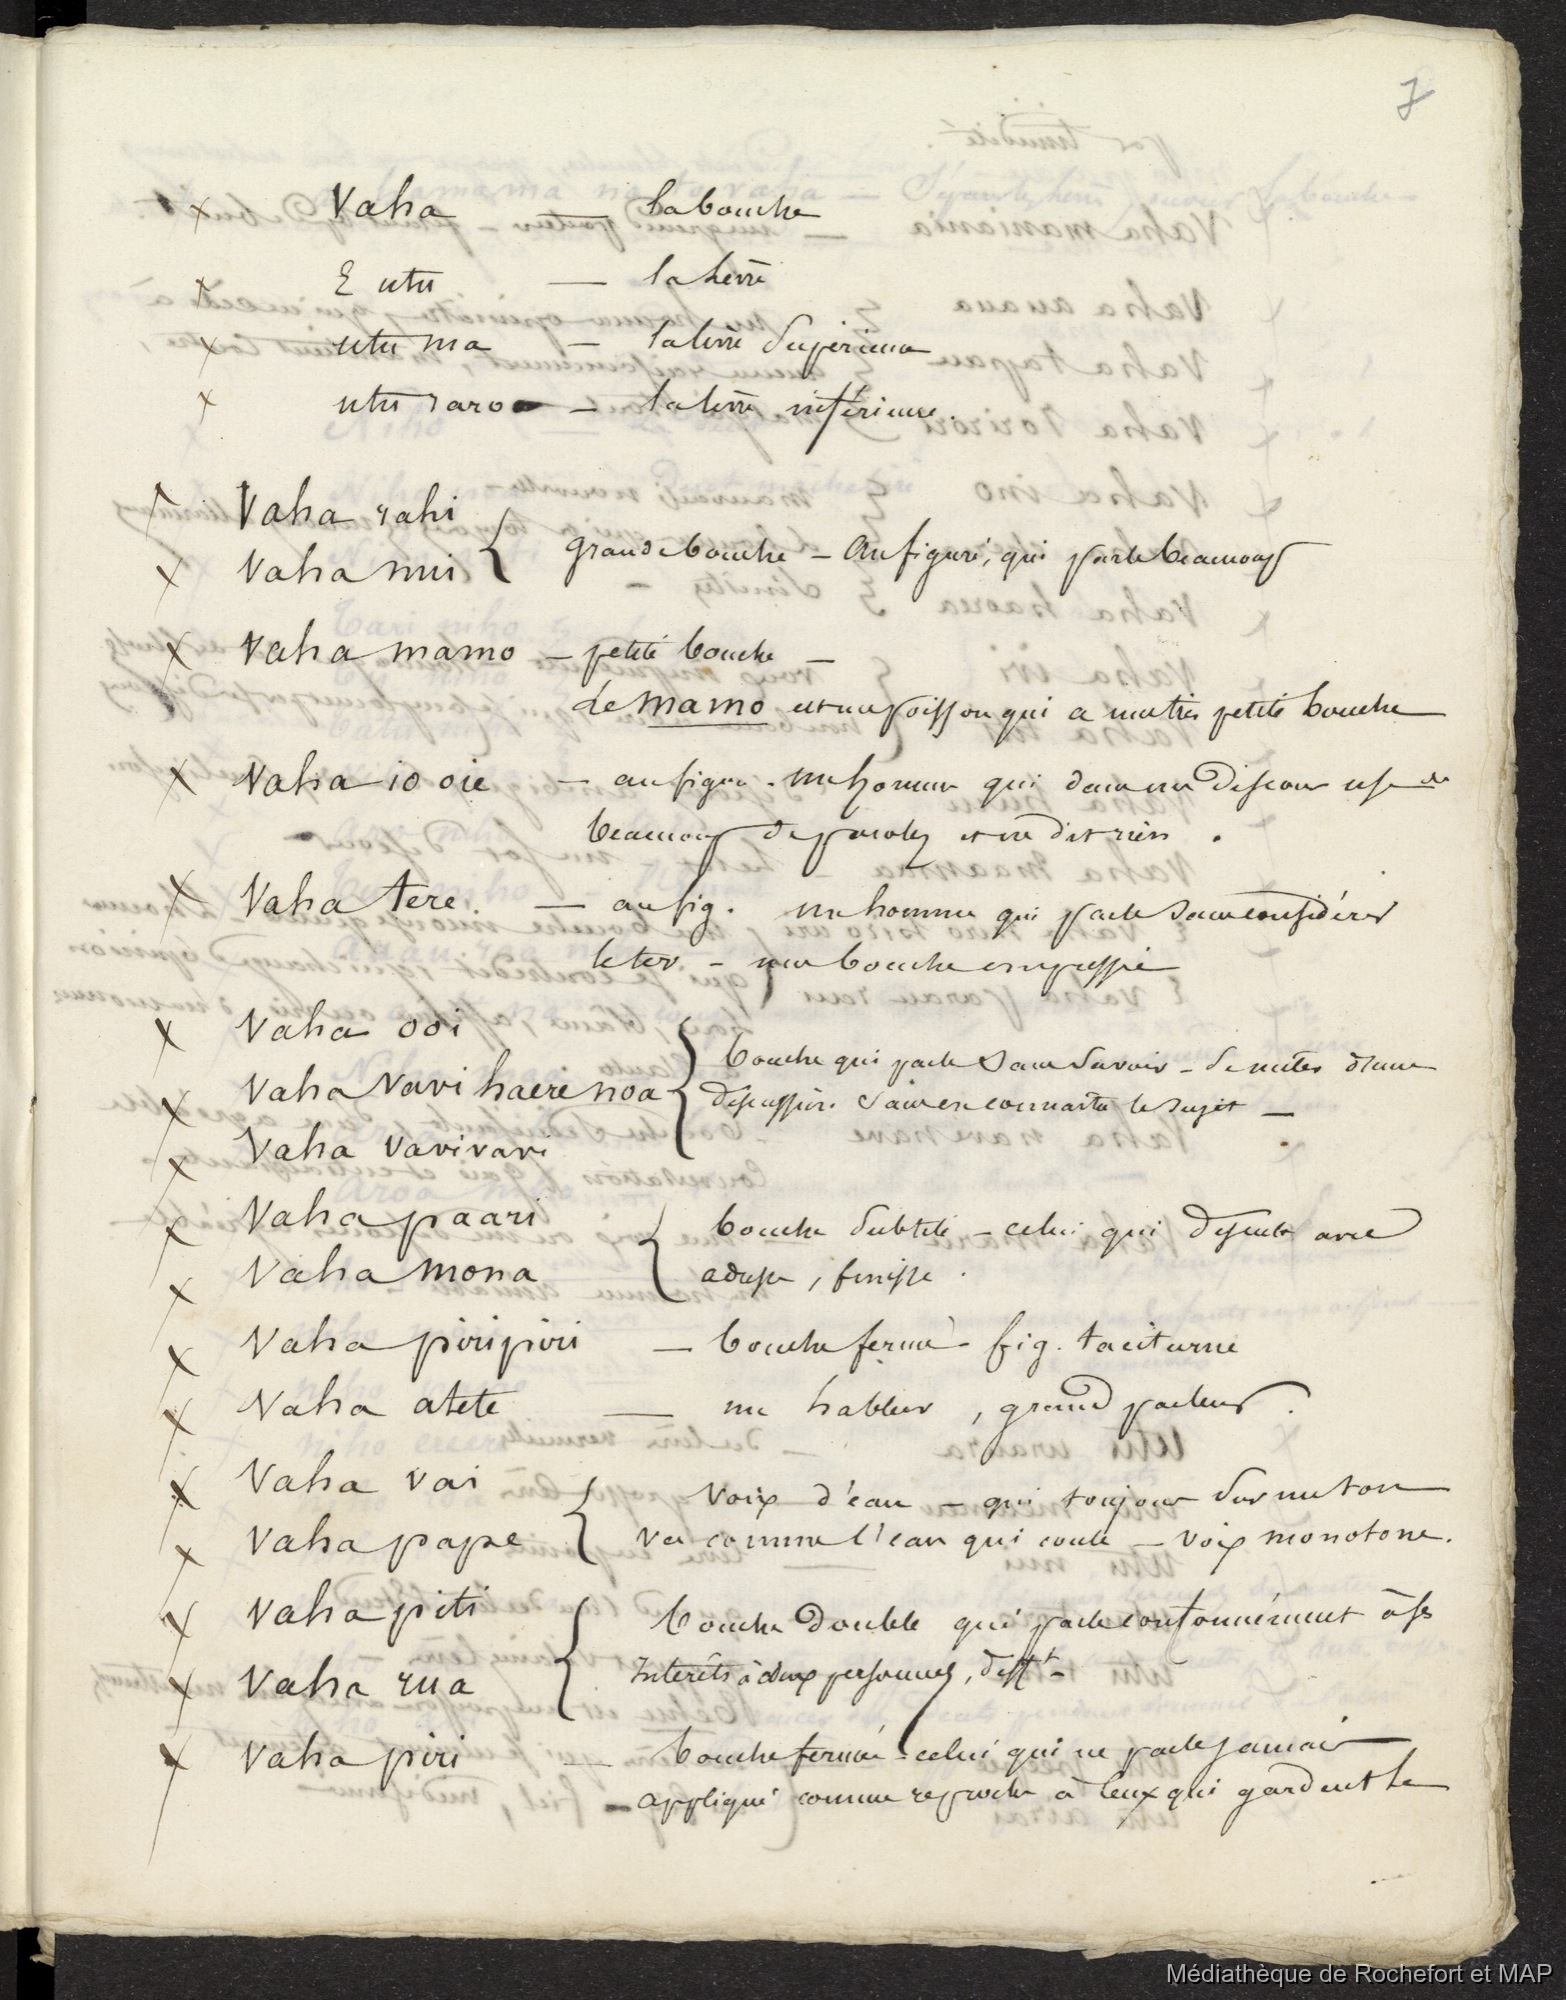 7
x Vaha — la bouche
x E utu — la levre
x utu ma — la levre superieure
x utu raro — la levre inférieure.
x Vaha rahi
x Vaha nui { grande bouche — Au figuré, qui parle beaucoup
x Vaha mamo — petite bouche —
Le mamo est un poisson qui a une très petite bouche
x Vaha io oie — au figuré. un homme qui dans un discours use de
beaucoup de paroles et ne dit rien.
x Vaha tere. — au fig. un homme qui parle sans considérer
— une bouche empressée
x Vaha ooi
x Vaha Vavi haere noa { bouche qui parle sans savoir — se mêler d'une
discussion sans en connaitre le sujet —
x Vaha vavivavi
x Vaha paari { bouche subtile — celui qui discute avec
x Vaha mona adresse, finesse.
x Vaha piripiri — bouche fermé — fig. taciturne
x Vaha atete — un hableur, grand parleur.
x Vaha vai { Voix d'eau — qui toujours sur un ton
x Vaha pape va comme l'eau qui coule — voix monotone.
x Vaha piti { bouche double qui parle conformément à ses
x Vaha rua Interêts à deux personnes, difft.
x Vaha piri — bouche fermée — celui qui ne parle jamais —
— appliqué comme reproche à ceux qui gardent le
Médiathèque de Rochefort et MAP